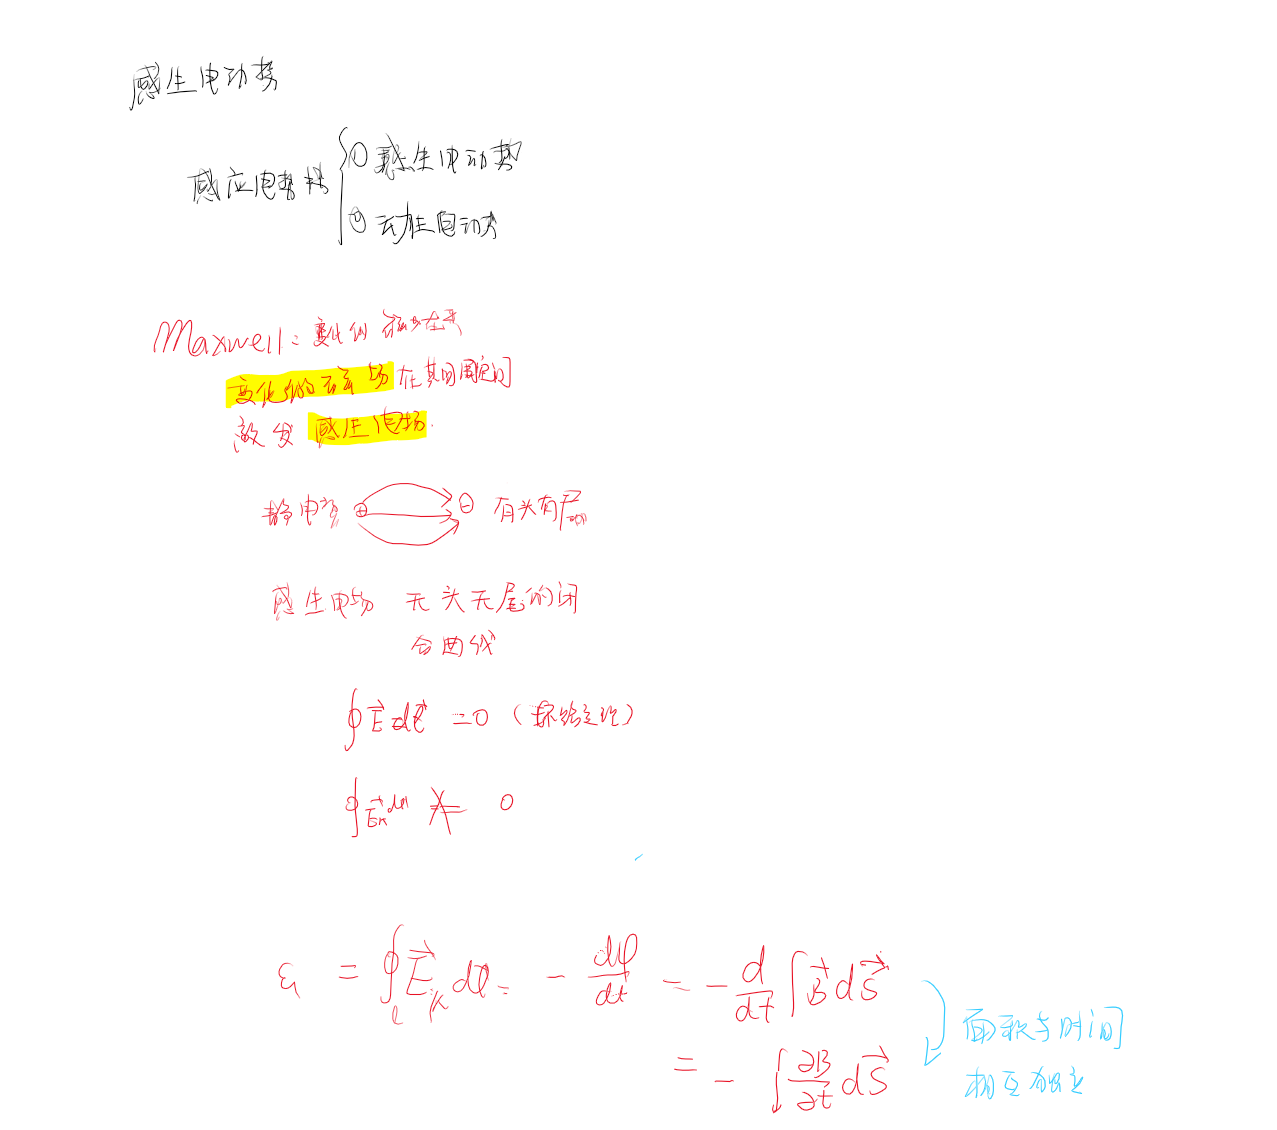 感生电动势
感应电动势
① 感生电动势
② 动生电动势
Maxwell: 变化的
变化的磁场在其周围空间
激发感生电场.
静电场 ⊕ ⊖ 有头有尾
感生电场 无头无尾的闭
合曲线
∮E⃗ dl⃗ =0 (环路定理)
∮E⃗k dl ≠ 0
εi = ∮l E⃗k dl = - dφ/dt = - d/dt ∫B⃗ dS⃗
= - ∫ ∂B/∂t dS⃗
面积与时间
相互独立